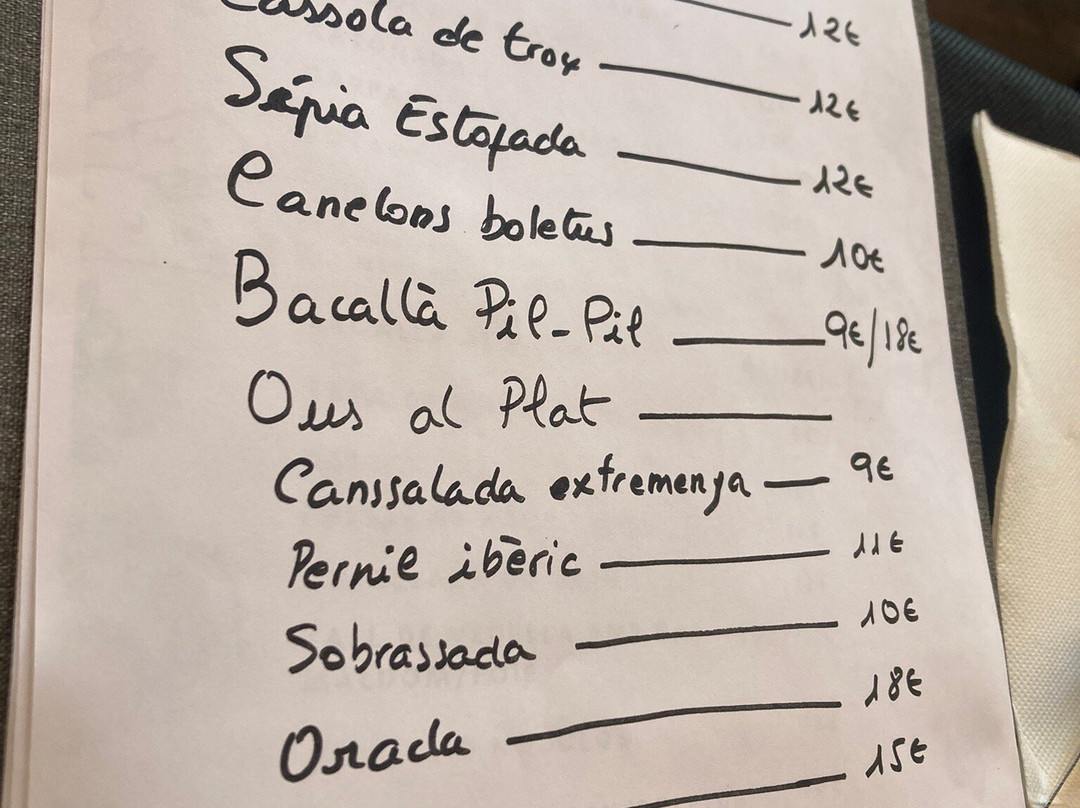 12€
Cassola de trox — 12€
Sépia Estofada — 12€
Canelons boletus — 10€
Bacallà Pil-Pil — 9€/18€
Ous al Plat —
Canssalada extremenya — 9€
Pernil ibèric — 11€
Sobrassada — 10€
Orada — 18€
15€